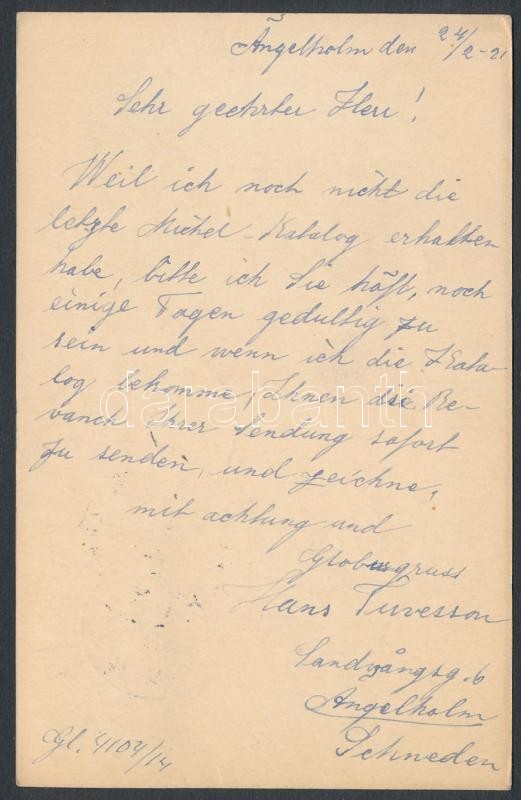 Ängelholm den 24/2-21
Sehr geehrter Herr!
Weil ich noch nicht die
letzte Michel-Katalog erhalten
habe, bitte ich Sie höfl. noch
einige Tagen gedultig zu
sein und wenn ich die Kata-
log bekomme, Ihnen die Re-
vanch Ihrer Sendung sofort
zu senden, und zeichne,
mit achtung und
Globusgruss
Hans Tuvesson
Landvångsg. 6
Ängelholm
Schweden
Gl. 4104/14
darabanth